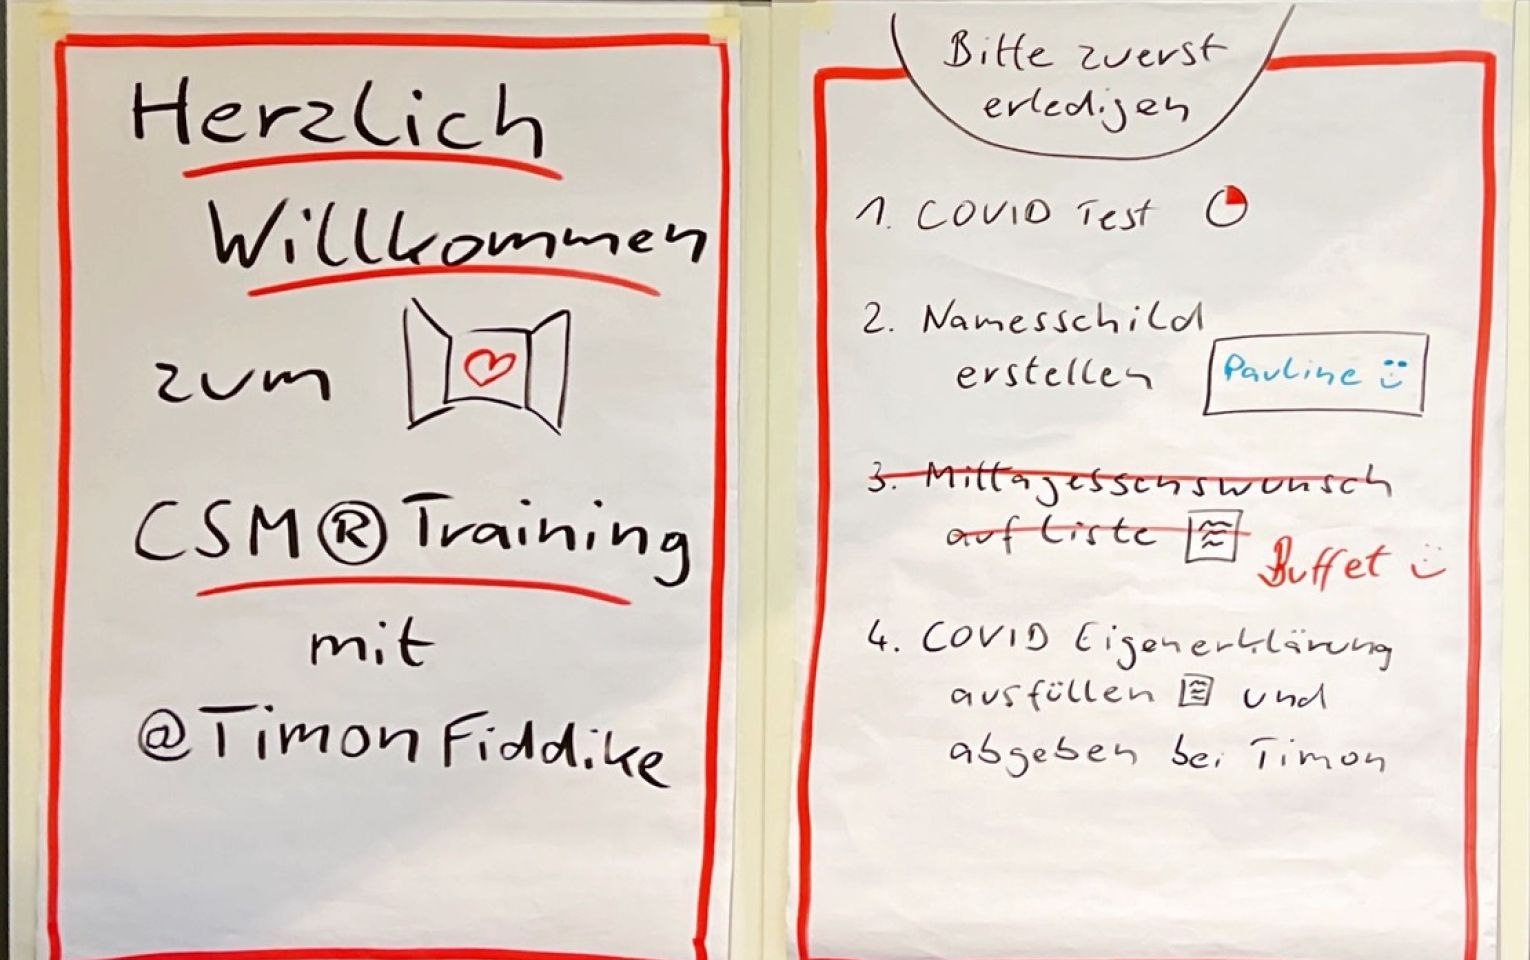 Herzlich
Willkommen
zum
CSM® Training
mit
@TimonFiddike
Bitte zuerst
erledigen
1. COVID Test
2. Namesschild
erstellen
Pauline
3. Mittagessenswunsch
auf Liste
Buffet
4. COVID Eigenerklärung
ausfüllen und
abgeben bei Timon